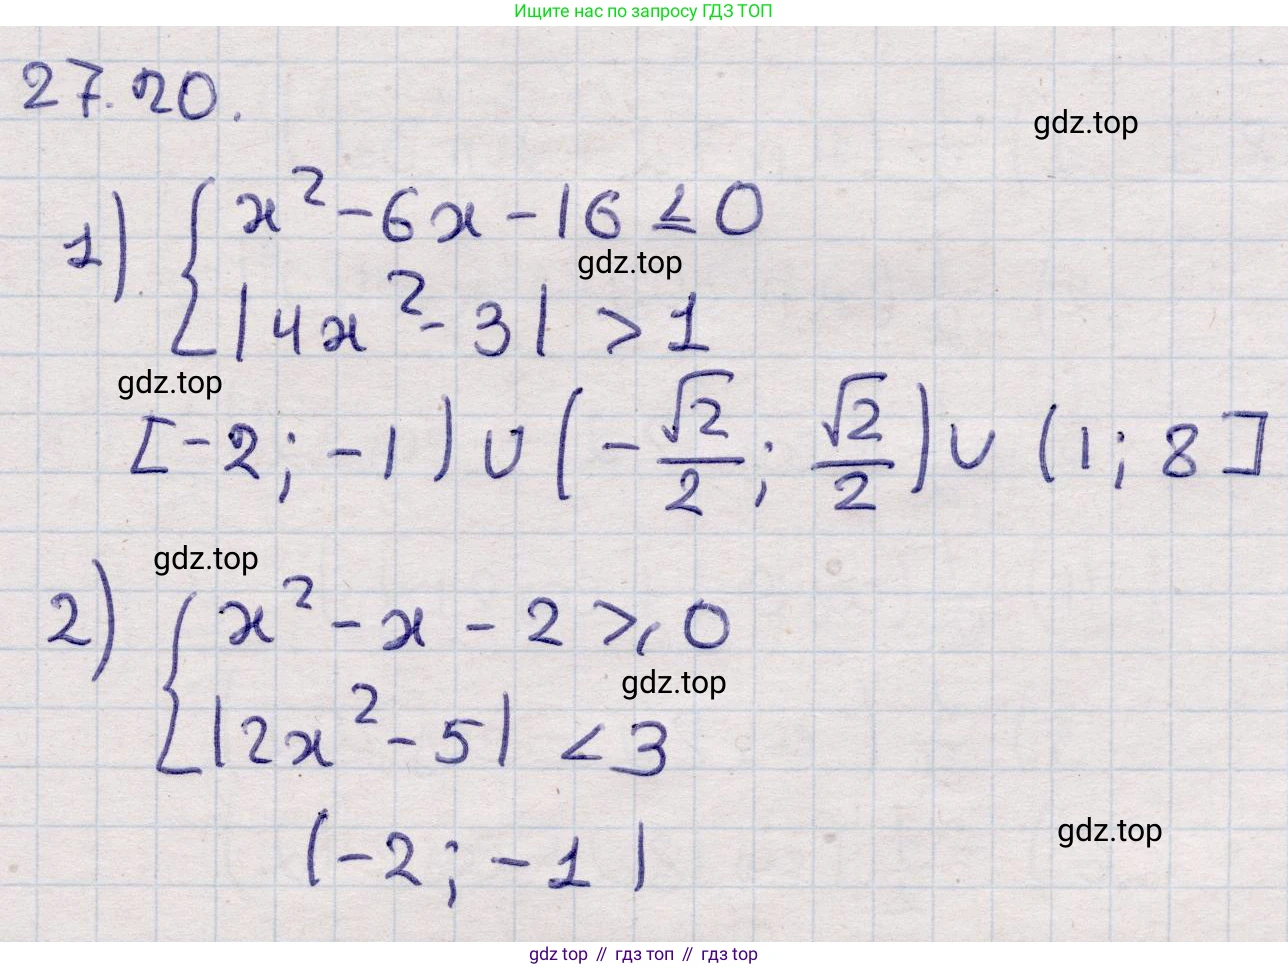 Ищите нас по запросу ГДЗ ТОП
27.20.
gdz.top
1) { x² - 6x - 16 ≤ 0
gdz.top
|4x² - 3| > 1
gdz.top
[-2; -1) ∪ (-√2/2; √2/2) ∪ (1; 8]
gdz.top
2) { x² - x - 2 ≥ 0
gdz.top
|2x² - 5| < 3
gdz.top
(-2; -1)
gdz top // гдз топ // gdz top